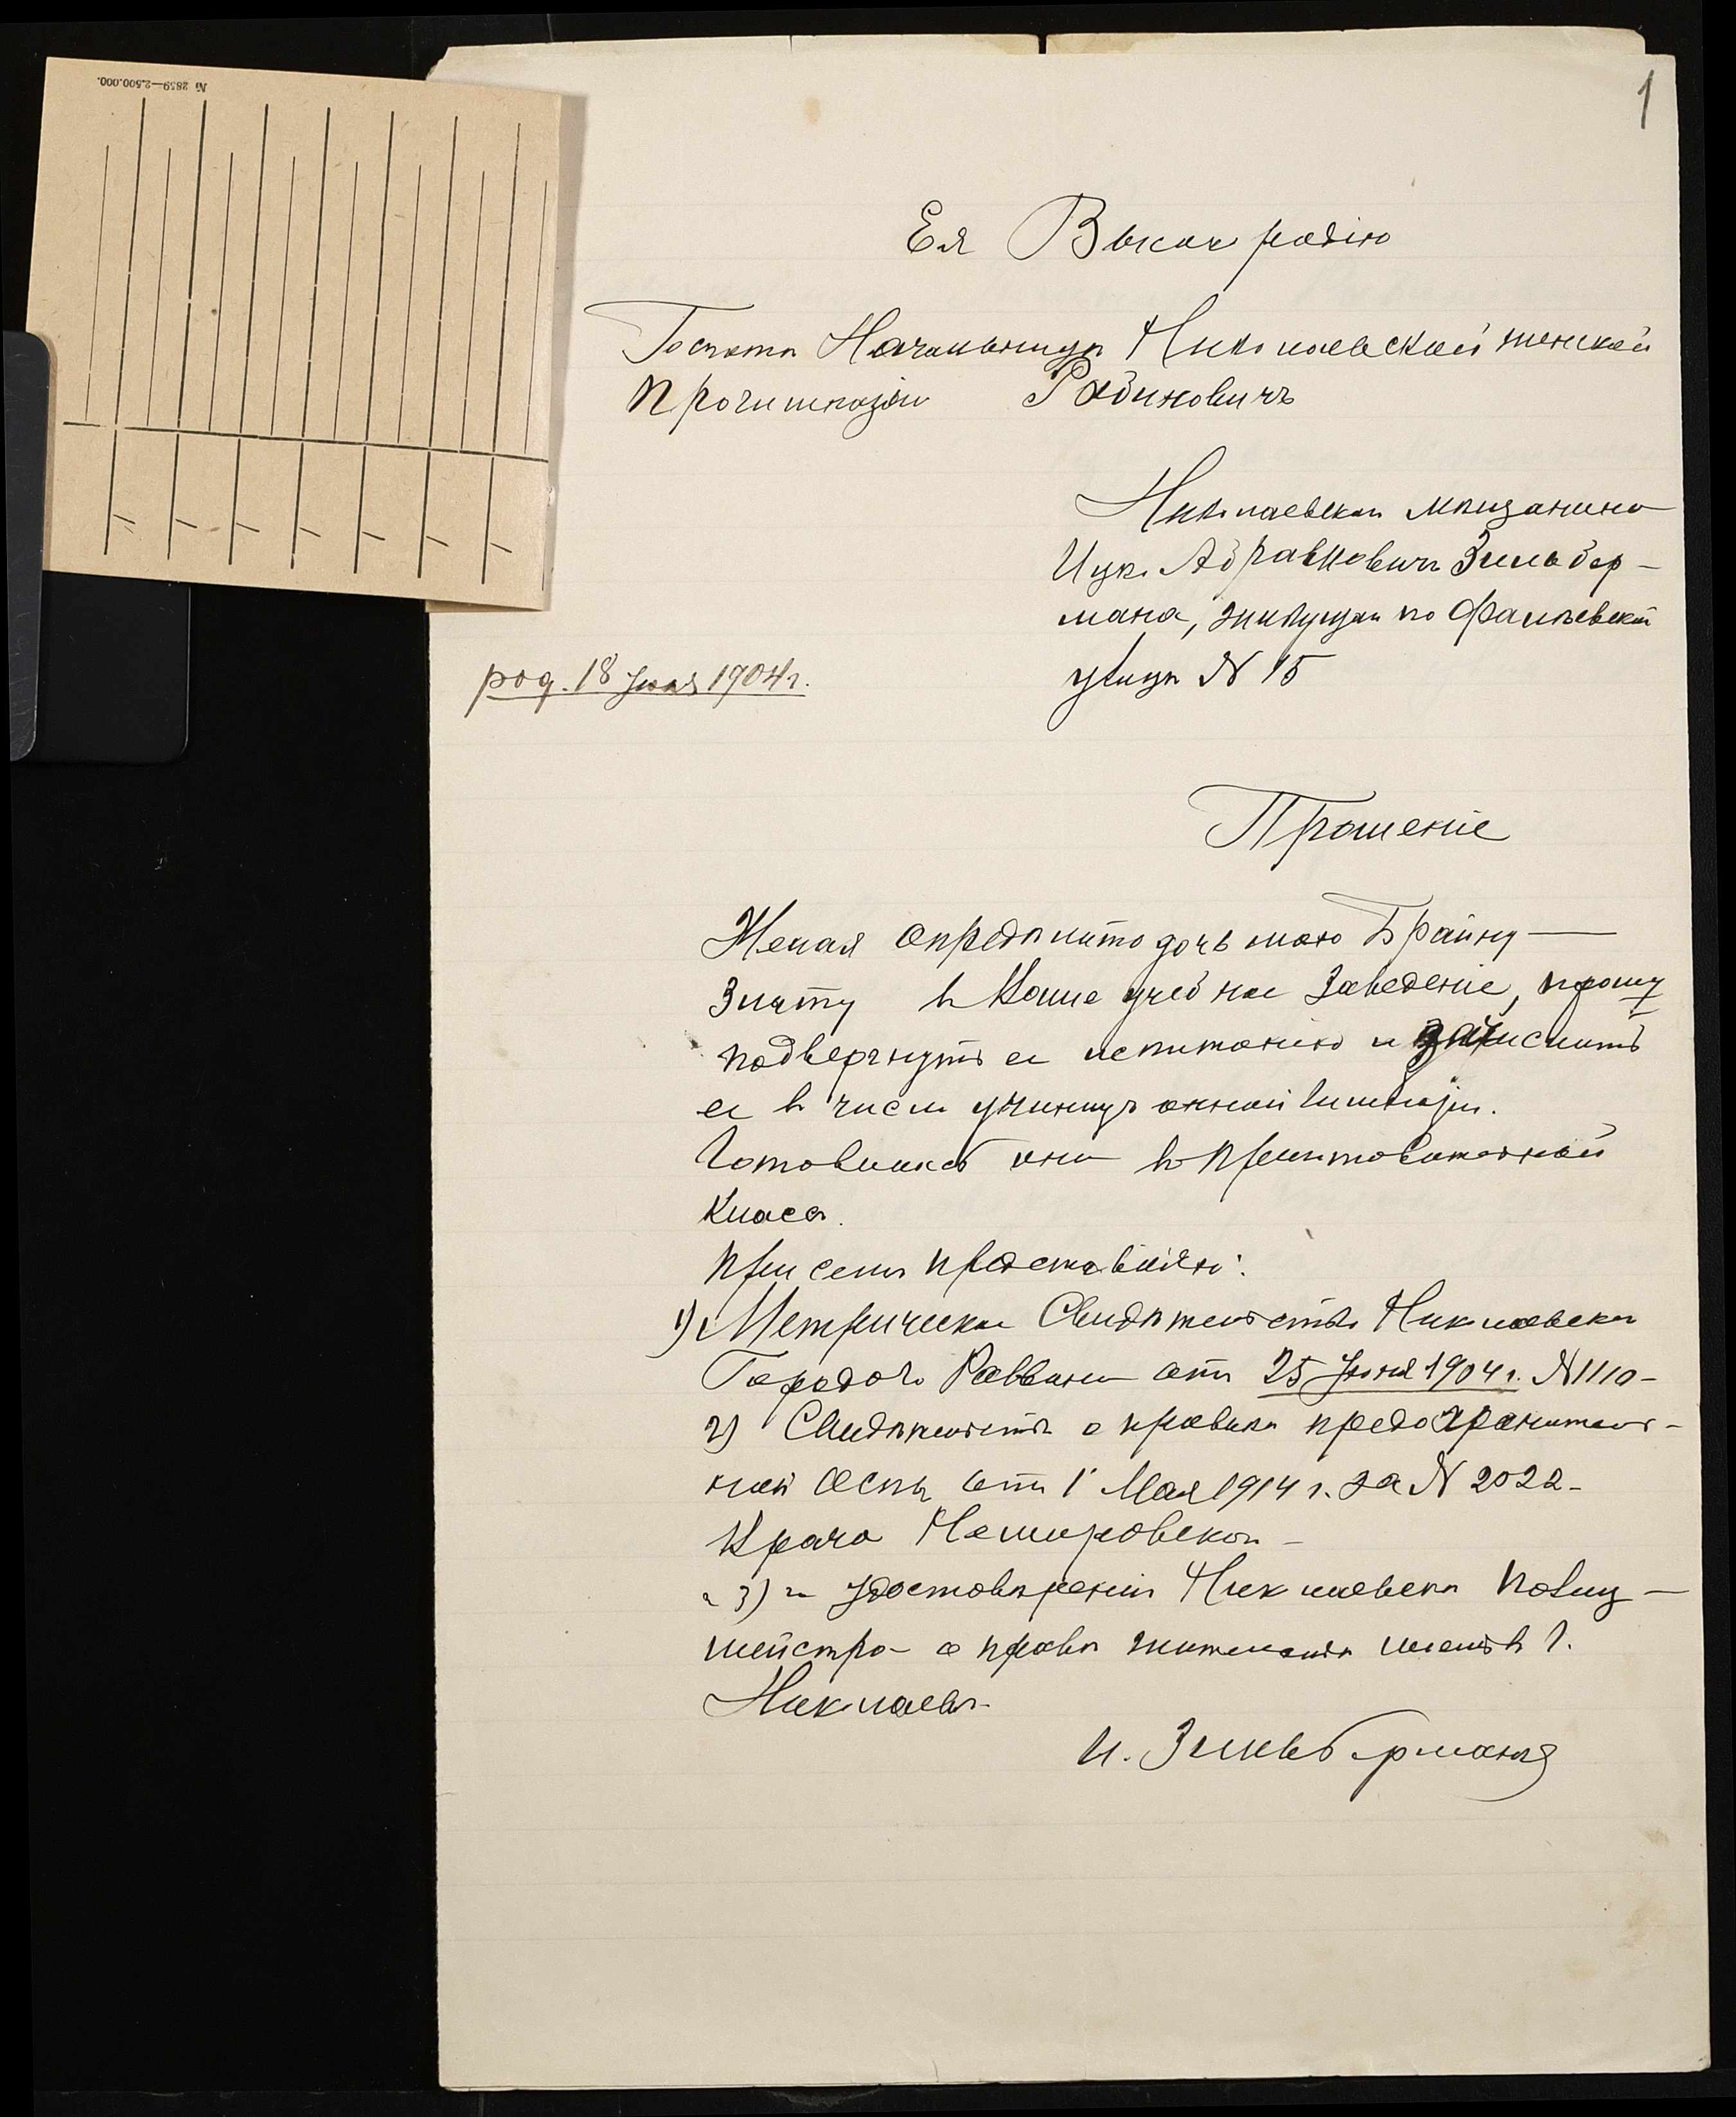 № 2859—2.500.000.
1
Ея Высокородію
Госпожѣ Начальницѣ Николаевской женской
Прогимназіи Рабиновичъ
Николаевскаго мѣщанина
Ицко Абрамовича Зильбер-
мана, живущаго по Фалѣевской
улицѣ № 15
род. 18 Іюня 1904 г.
Прошеніе
Желая опредѣлить дочь мою Брайну —
Злату въ Ваше учебное Заведеніе, прошу
подвергнуть ее испытанію и зачислить
ее въ число ученицъ оной гимназіи.
Готовилась она въ приготовительный
классъ.
При семъ представляю:
1) Метрическое Свидѣтельство Николаевскаго
Городового Раввина отъ 25 Іюня 1904 г. № 1110 -
2) Свидѣтельство о прививкѣ предохранитель-
ной Оспы отъ 1 Мая 1914 г. за № 2022 -
Врача Немировскаго -
и 3) удостовѣреніе Николаевскаго Полиц-
мейстра о правѣ жительства въ г.
Николаевѣ
И. Зильберманъ